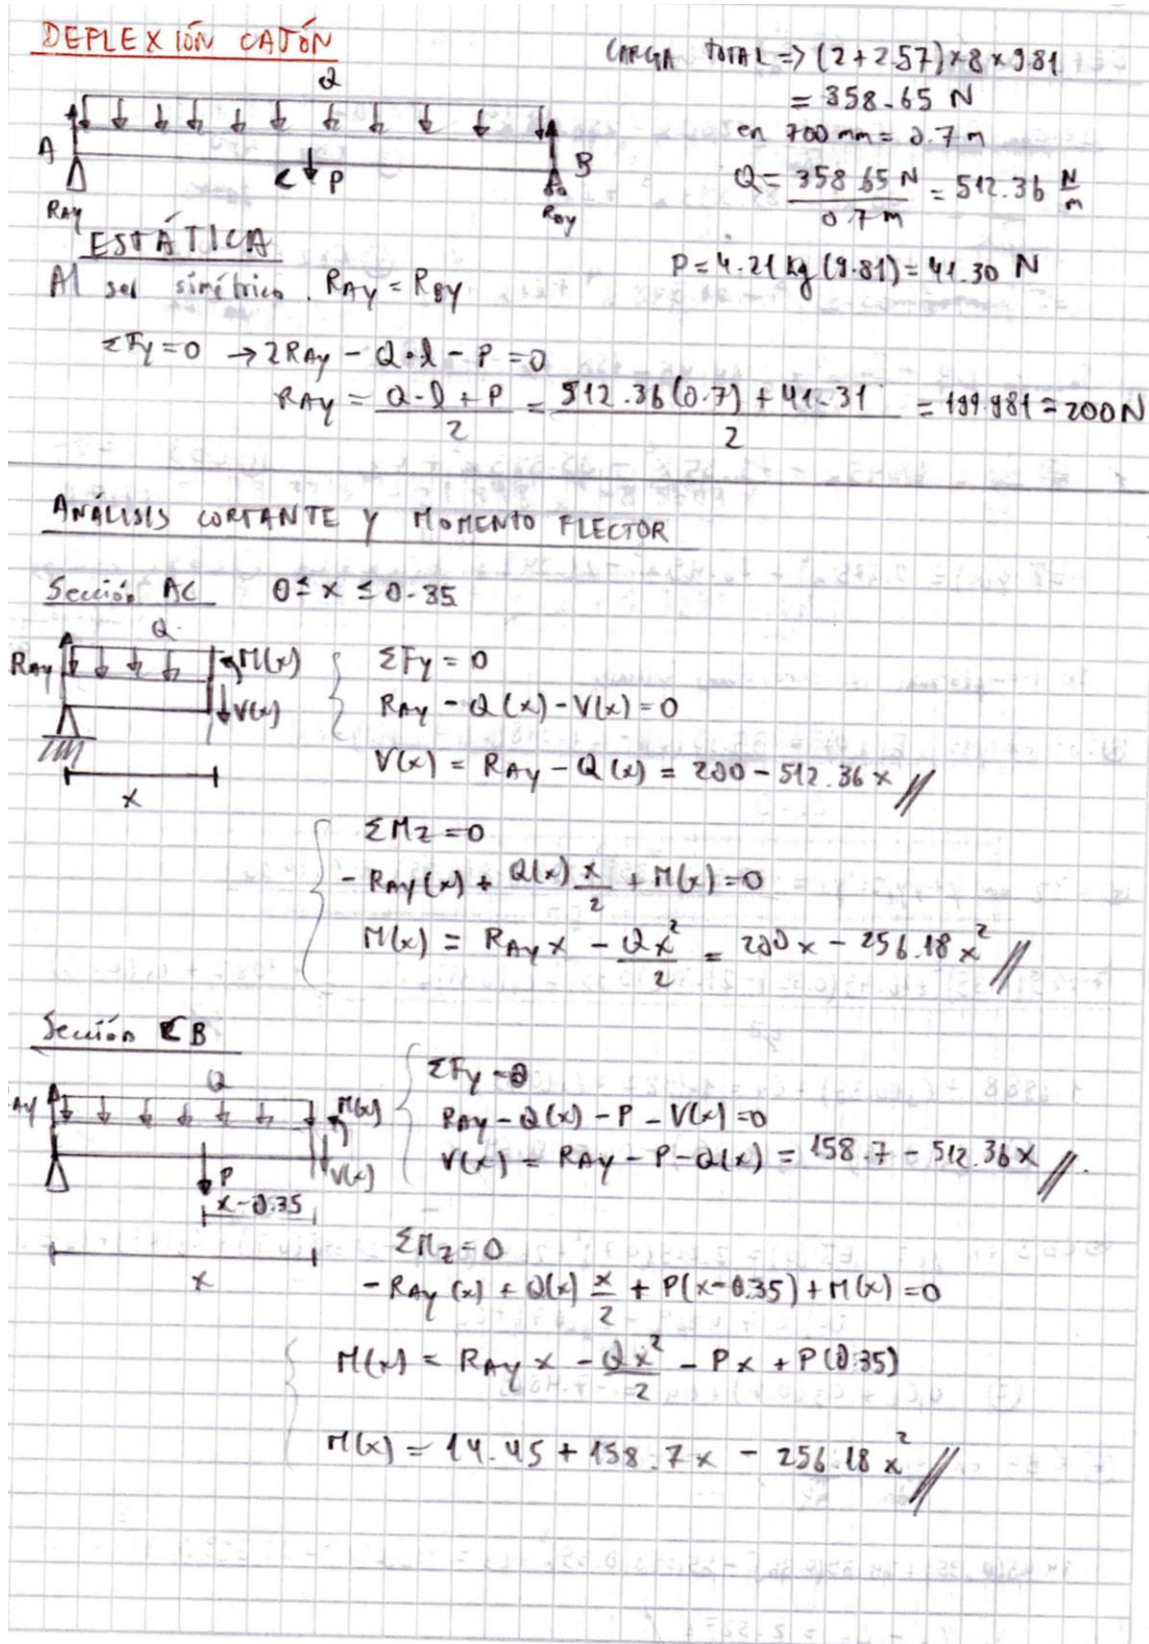 DEFLEXIÓN CAJÓN
CARGA TOTAL => (2+2.57)×8×9.81
= 358.65 N
en 700 mm = 0.7 m
Q = 358.65 N / 0.7 m = 512.36 N/m
P = 4.21 kg (9.81) = 41.30 N
Q
A
C P
B
RAy
RBy
ESTÁTICA
Al ser simétrico. RAy = RBy
ΣFy = 0 → 2RAy - Q·l - P = 0
RAy = (Q·l + P)/2 = (512.36(0.7) + 41.31)/2 = 199.981 = 200N
ANÁLISIS CORTANTE Y MOMENTO FLECTOR
Sección AC 0 ≤ x ≤ 0.35
Q
RAy
M(x)
V(x)
x
ΣFy = 0
RAy - Q(x) - V(x) = 0
V(x) = RAy - Q(x) = 200 - 512.36x //
ΣMz = 0
- RAy(x) + Q(x) x/2 + M(x) = 0
M(x) = RAy x - Qx²/2 = 200x - 256.18x² //
Sección CB
Q
Ay
M(x)
V(x)
P
x-0.35
x
ΣFy = 0
RAy - Q(x) - P - V(x) = 0
V(x) = RAy - P - Q(x) = 158.7 - 512.36x //.
ΣMz = 0
- RAy(x) + Q(x) x/2 + P(x-0.35) + M(x) = 0
M(x) = RAy x - Qx²/2 - Px + P(0.35)
M(x) = 14.45 + 158.7x - 256.18x² //